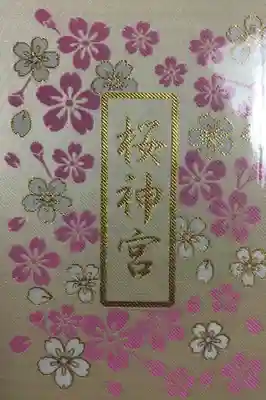 桜神宮